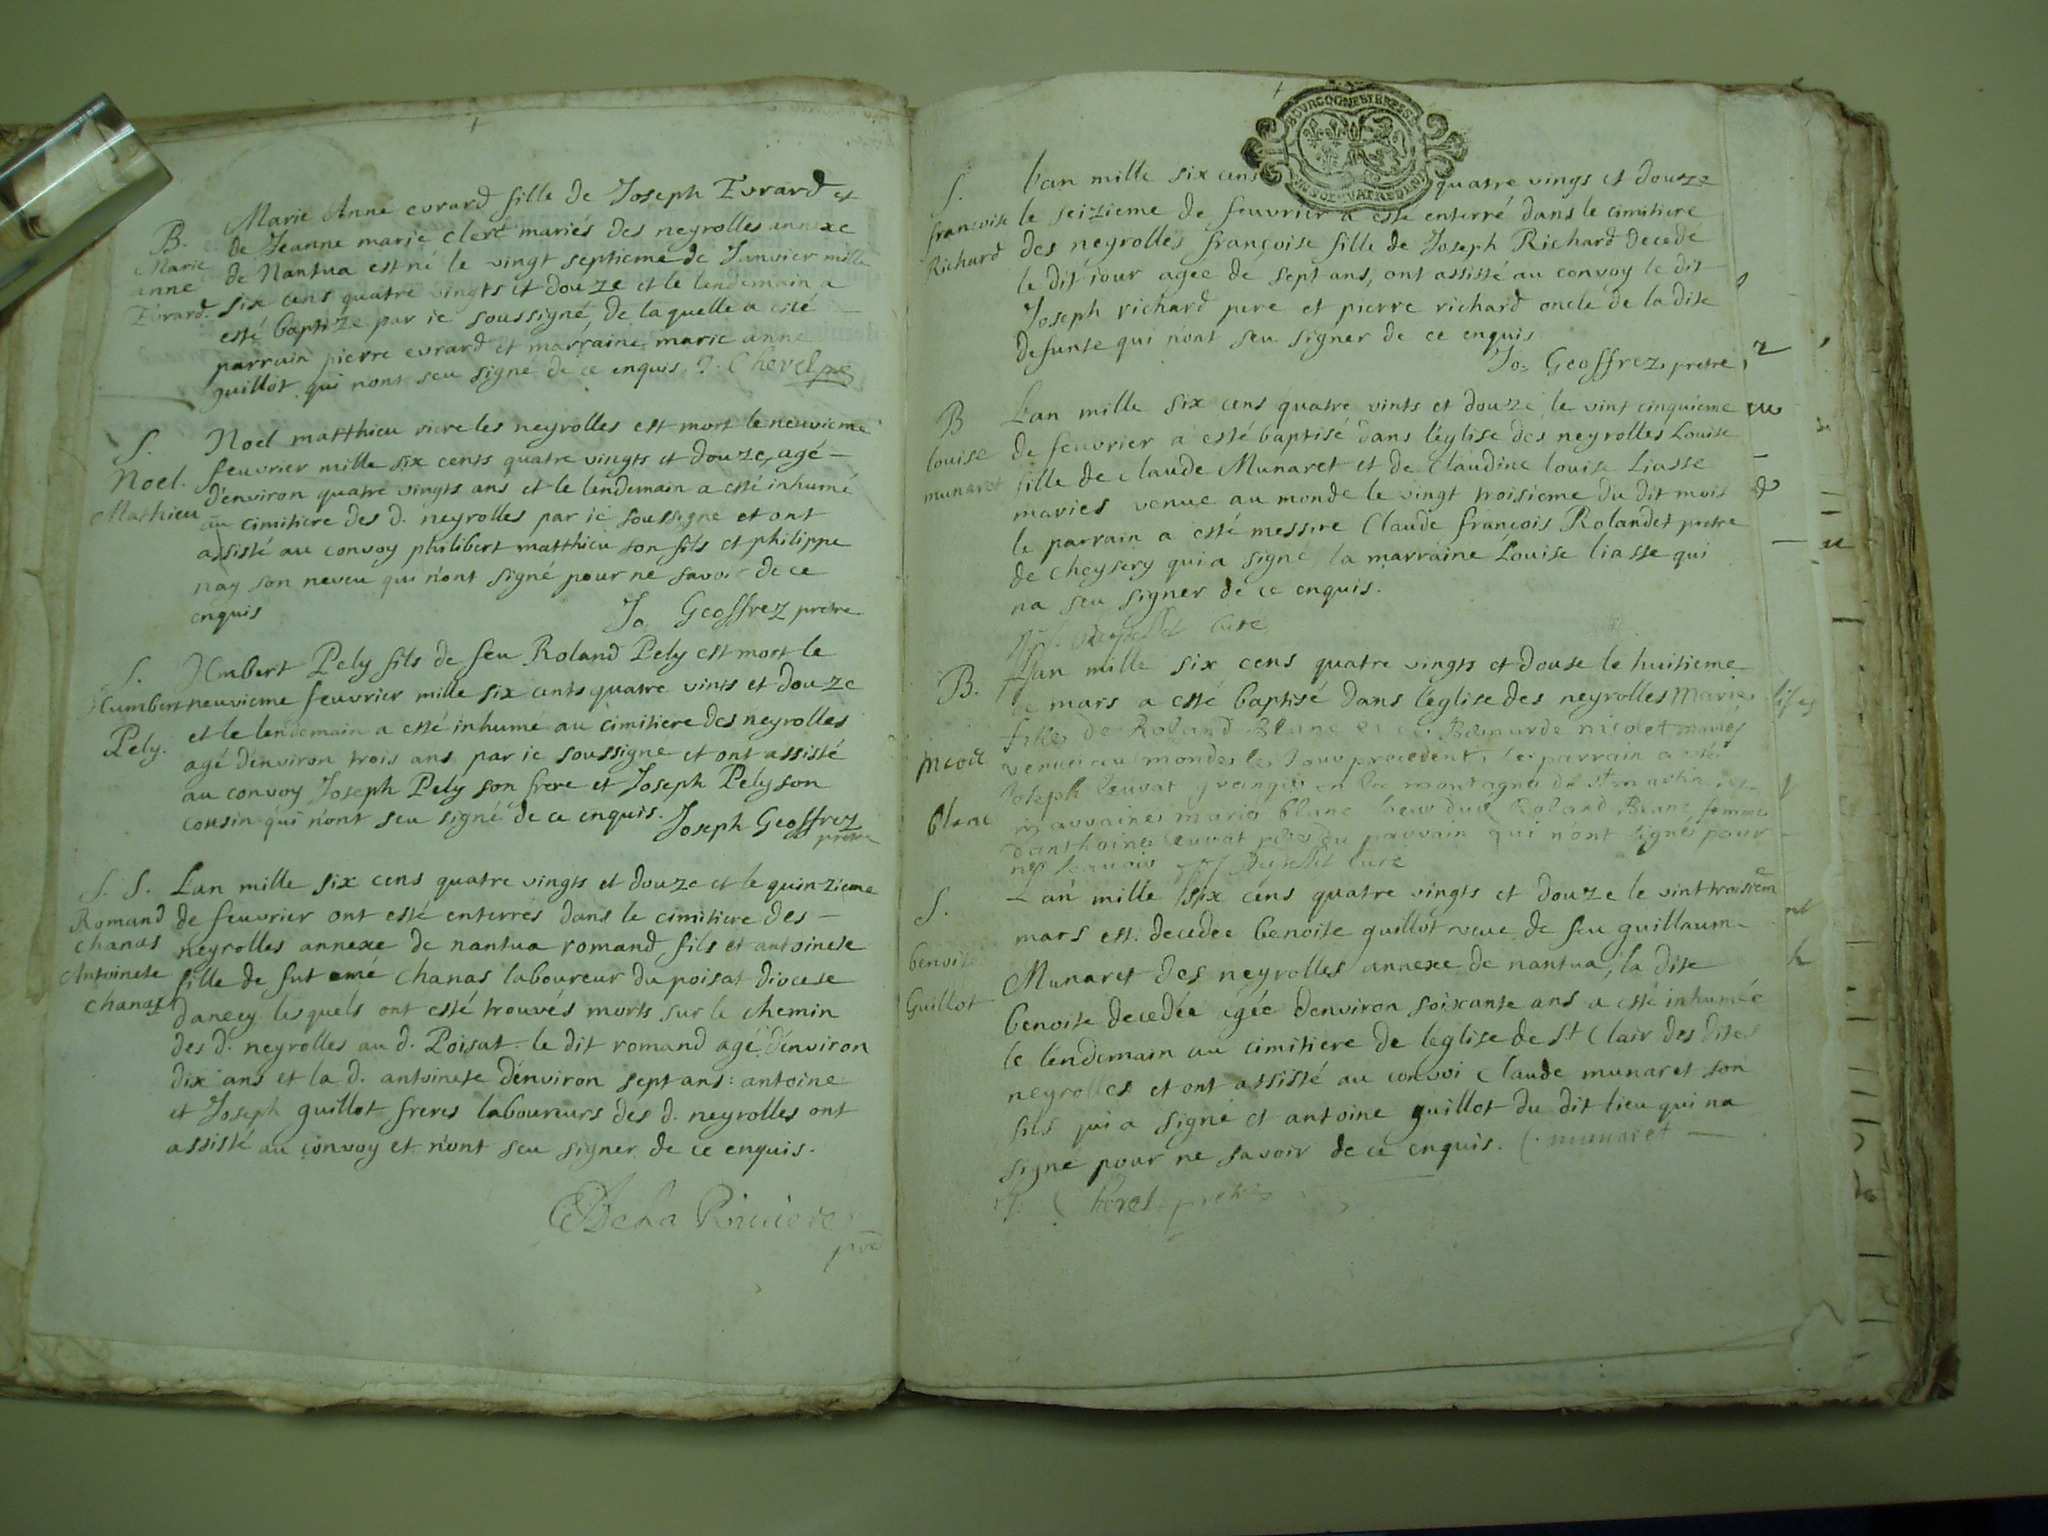 B.
Marie
anne
Evrard
Marie Anne evrard fille de Joseph Evrard et
de Jeanne marie Clert mariés des neyrolles annexe
de Nantua est né le vingt septieme de Janvier mille
six cens quatre vingts et douze et le lendemain a
esté baptize par ie soussigné, de laquelle a esté
parrain pierre evrard et marraine marie anne
guillot qui nont seu signe de ce enquis. J. Cherel pre
S.
Noel.
Mathieu
Noel matthieu sicre les neyrolles est mort le neuvieme
feuvrier mille six cents quatre vingts et douze, agé
d'environ quatre vingts ans et le lendemain a esté inhumé
au cimitiere des d. neyrolles par ie soussigne et ont
assisté au convoy philibert matthieu son fils et philippe
nay son neveu qui n'ont signé pour ne savoir de ce
enquis
Jo Geoffrez pretre
S.
Humbert
Pely.
Humbert Pely fils de feu Roland Pely est mort le
neuvieme feuvrier mille six cents quatre vints et douze
et le lendemain a esté inhume au cimitiere des neyrolles
agé d'environ trois ans par ie soussigne et ont assisté
au convoy Joseph Pely son frere et Joseph Pely son
cousin qui n'ont seu signé de ce enquis. Joseph Geoffrez
pretre
S. S.
Romand
chanas
Antoinete
chanas
Lan mille six cens quatre vingts et douze et le quinzieme
de feuvrier ont esté enterrés dans le cimitiere des
neyrolles annexe de nantua romand fils et antoinete
fille de fut amé Chanas laboureur du poisat diocese
danecy lesquels ont esté trouvés morts sur le chemin
des d. neyrolles au d. Poisat le dit romand agé d'environ
dix ans et la d. antoinete d'environ sept ans: antoine
et Joseph guillot freres laboureurs des d. neyrolles ont
assisté au convoy et n'ont seu signer de ce enquis.
De la Riviere
pre
S.
francoise
Richard
L'an mille six cens quatre vings et douze
le seizieme de feuvrier a esté enterré dans le cimitiere
des neyrolles françoise fille de Joseph Richard decede
le dit iour agee de sept ans, ont assisté au convoy le dit
Joseph richard pere et pierre richard oncle de la dite
defunte qui n'ont seu signer de ce enquis
Jo. Geoffrez pretre
B
louise
munaret
L'an mille six cens quatre vints et douze le vint cinquieme
de feuvrier a esté baptisé dans l'église des neyrolles Louise
fille de Claude Munaret et de Claudine louise Liasse
maries venue au monde le vingt troisieme du dit mois
le parrain a esté messire Claude françois Rolandet pretre
de cheysery qui a signé la marraine Louise liasse qui
na seu signer de ce enquis.
curé
B.
blanc
L'an mille six cens quatre vingts et douse le huitieme
de mars a esté baptisé dans l'église des neyrolles Marie
fille de Roland Blanc et de Bernarde nicolet maries
venue au monde le Jour precedent, le parrain a esté
Joseph leuvat grangier en la montagne de st martin
marraine marie blanc Roland Blanc femme
danthoine leuvat pere du parrain qui n'ont signés pour
curé
S.
benoite
Guillot
L'an mille six cens quatre vingts et douze le vint troisiem
mars est decedee benoite guillot veue de feu guillaum
Munaret des neyrolles annexe de nantua, la dite
benoite decedée agée d'environ soixante ans a esté inhumée
le lendemain au cimitiere de leglise de St Clair des dites
neyrolles et ont assisté au convoi Claude munaret son
fils qui a signé et antoine guillot du dit lieu qui na
signe pour ne savoir de ce enquis. C. munaret
J. Cherel pretre